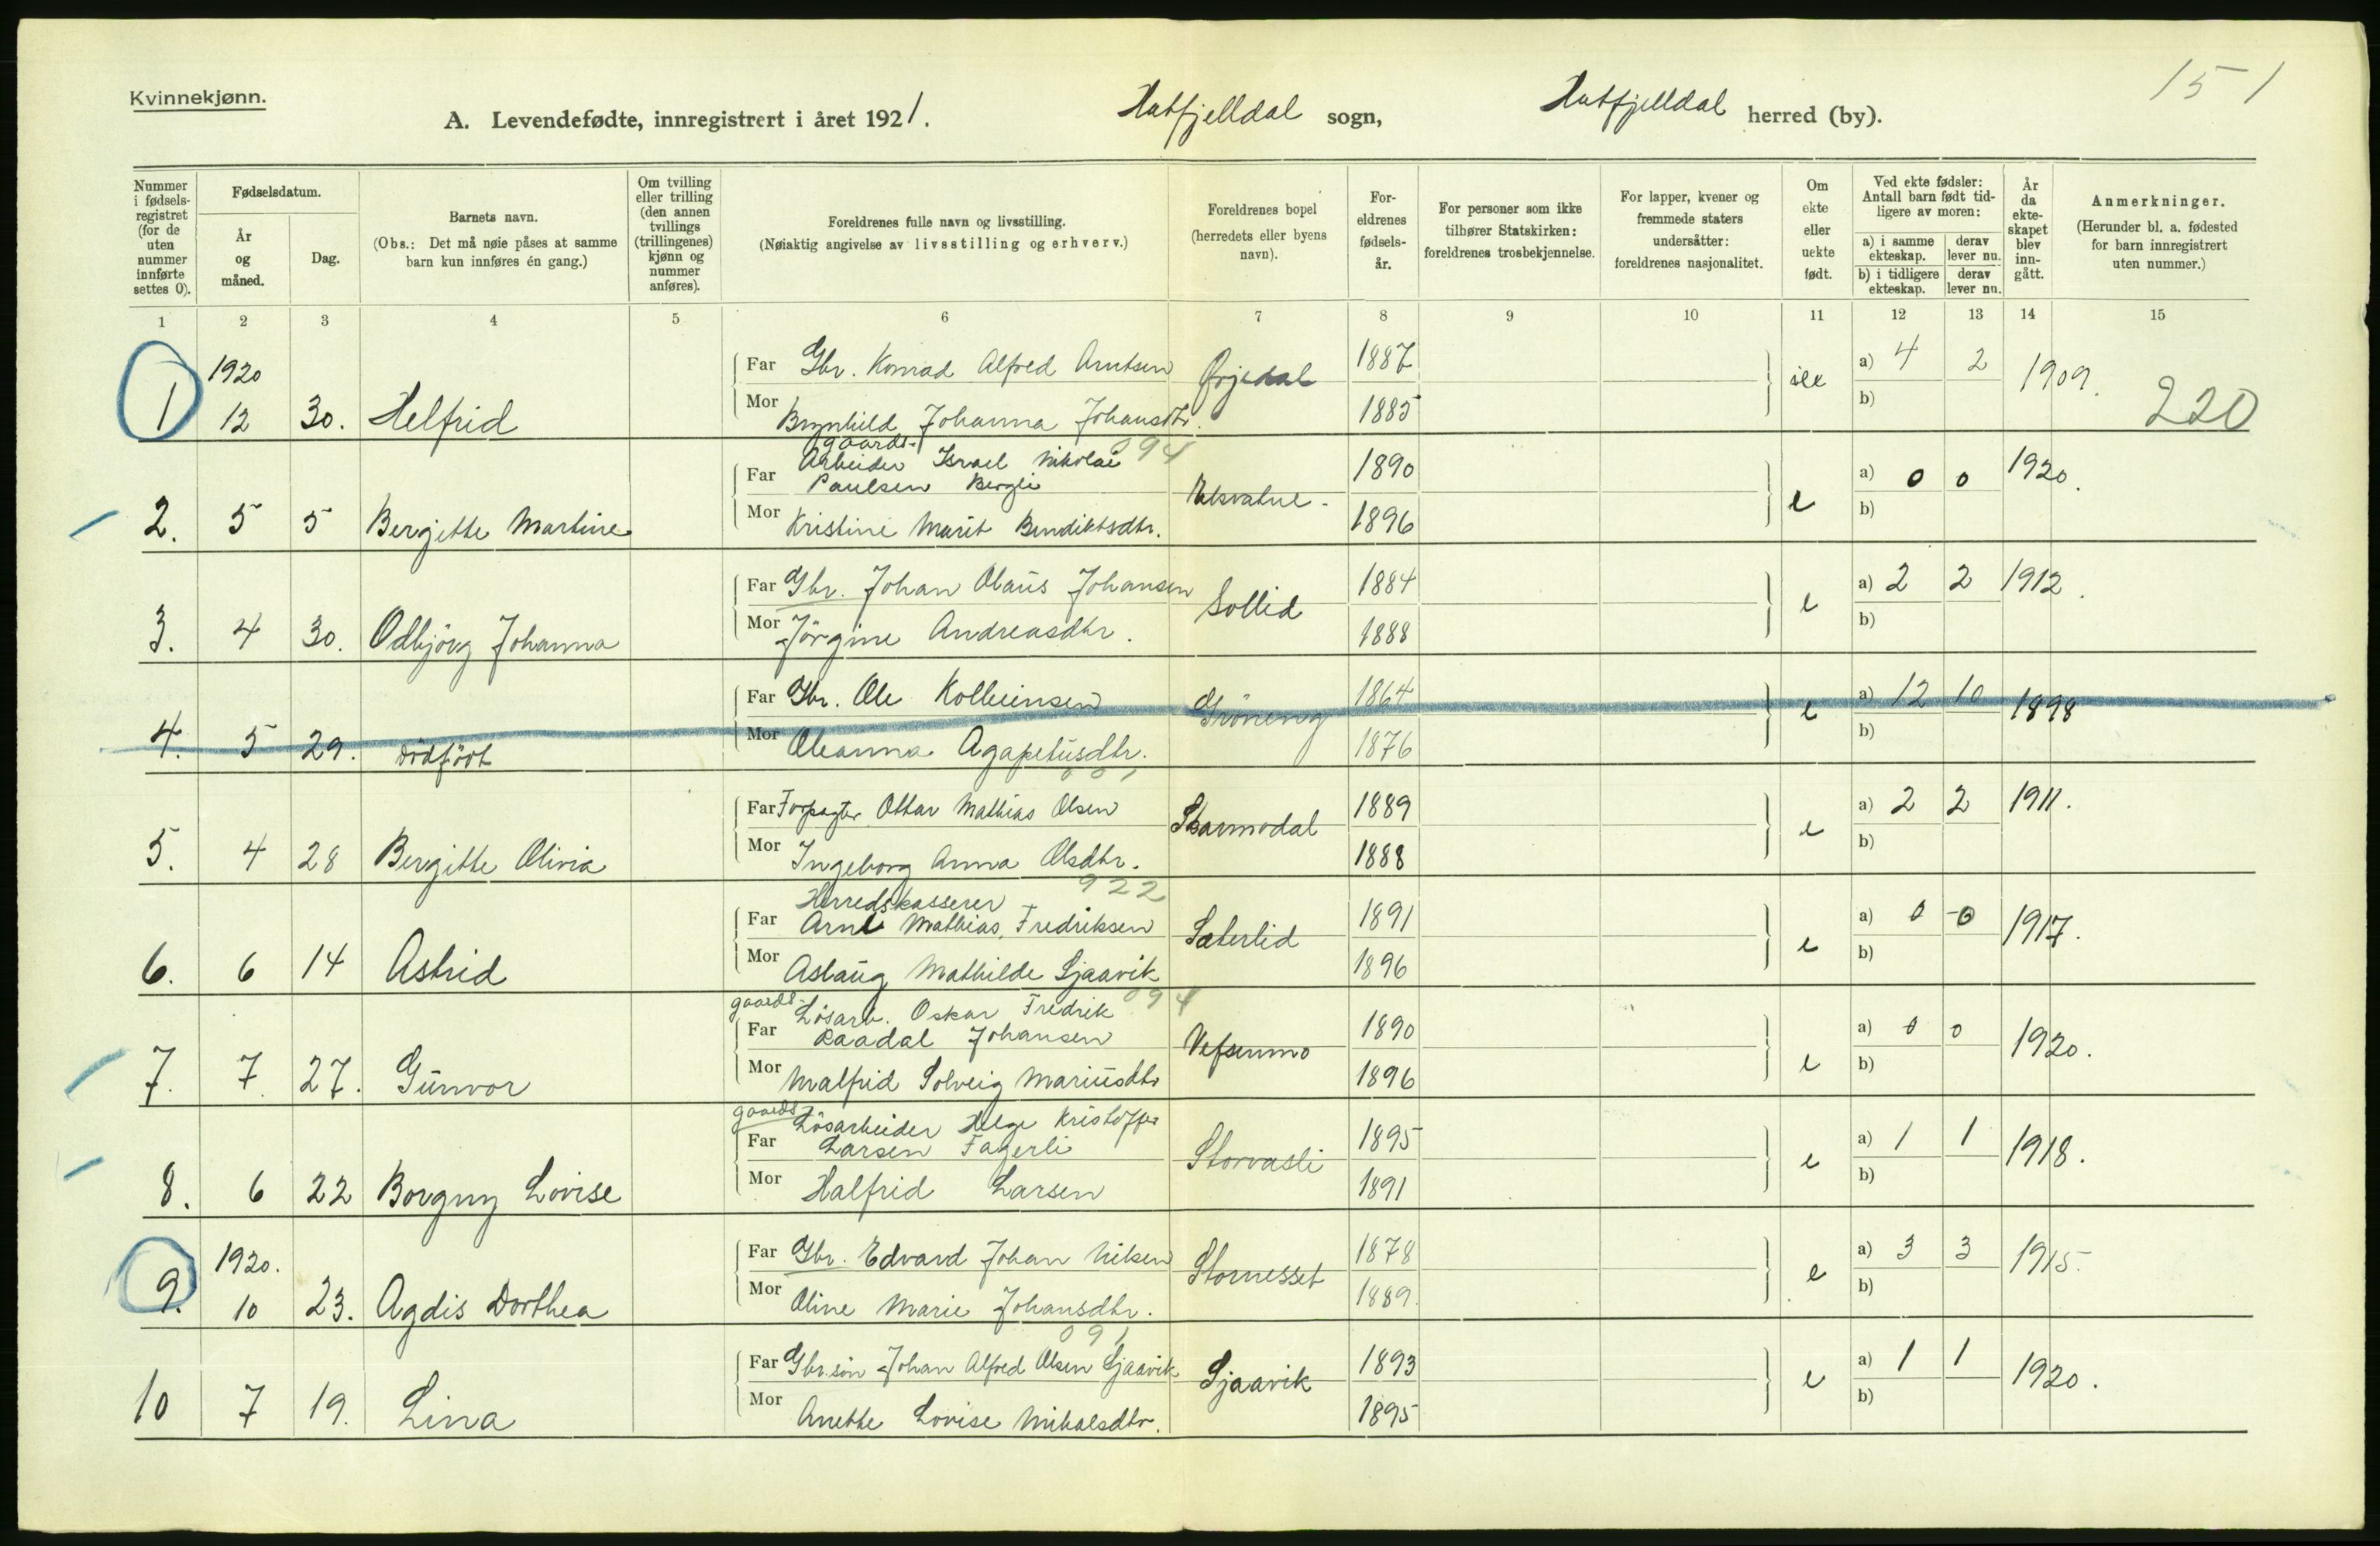 Kvinnekjønn.
A. Levendefødte, innregistrert i året 1921.
Hatfjelldal sogn,
Hatfjelldal herred (by).
151
Nummer i fødsels-registret (for de uten nummer innførte settes 0).
Fødselsdatum.
År og måned.
Dag.
Barnets navn.
(Obs.: Det må nøie påses at samme barn kun innføres én gang.)
Om tvilling eller trilling (den annen tvillings (trillingenes) kjønn og nummer anføres).
Foreldrenes fulle navn og livsstilling.
(Nøiaktig angivelse av livsstilling og erhverv.)
Foreldrenes bopel (herredets eller byens navn).
For-eldrenes fødsels-år.
For personer som ikke tilhører Statskirken: foreldrenes trosbekjennelse.
For lapper, kvener og fremmede staters undersåtter: foreldrenes nasjonalitet.
Om ekte eller uekte født.
Ved ekte fødsler: Antall barn født tid-ligere av moren:
a) i samme ekteskap.
derav lever nu.
b) i tidligere ekteskap.
derav lever nu.
År da ekte-skapet blev inn-gått.
Anmerkninger.
(Herunder bl. a. fødested for barn innregistrert uten nummer.)
1 2 3 4 5 6 7 8 9 10 11 12 13 14 15
1 1920 12 30. Helfrid
Far Gbr. Konrad Alfred Arntsen 1887 a) 4 2 1909.
Mor Brynhild Johanna Johansdtr. 1885 b)
220
094
2. 5 5 Bergitte Martine
gaards-
Arbeider Israel Nikolai
Far Paulsen Bergli 1890 e a) 0 0 1920.
Mor Kristine Marit Bendiktsdtr. 1896 b)
3. 4 30. Odbjörg Johanna
Far Gbr. Johan Olaus Johansen Sollid 1884 e a) 2 2 1912.
Mor Jörgine Andreasdtr. 1888 b)
4. 5 29. dödfödt
Far Gbr. Ole Kolbeinsen Gröneng 1864 e a) 12 10 1898
Mor Oleanna Agapetusdtr. 1876 b)
5. 4 28 Bergitte Olivia
Far Forpagter Ottar Mathias Olsen Skarmodal 1889 e a) 2 2 1911.
Mor Ingeborg Anna Olsdtr. 1888 b)
922
6. 6 14 Astrid
Herredskasserer
Far Arne Mathias Fredriksen Sæterlid 1891 e a) 0 0 1917.
Mor Aslaug Mathilde Sjaavik 1896 b)
094
7. 7. 27. Gunvor
gaards-
Lösarb. Oskar Fredrik
Far Raadal Johansen Vefsenmo 1890 e a) 0 0 1920.
Mor Malfrid Solveig Mariusdtr 1896 b)
8. 6 22 Borgny Lovise
gaards-
Lösarbeider Helge Kristoffer
Far Larsen Fagerli Storvasli 1895 e a) 1 1 1918.
Mor Halfrid Larsen 1891 b)
9. 1920. 10 23. Agdis Dorthea
Far Gbr. Edvard Johan Nilsen Stornesset 1878 e a) 3 3 1915.
Mor Oline Marie Johansdtr. 1889. b)
091
10 7 19. Lina
Far Gbr.sön Johan Alfred Olsen Sjaavik Sjaavik 1893 e a) 1 1 1920.
Mor Anette Lovise Mikalsdtr. 1895 b)